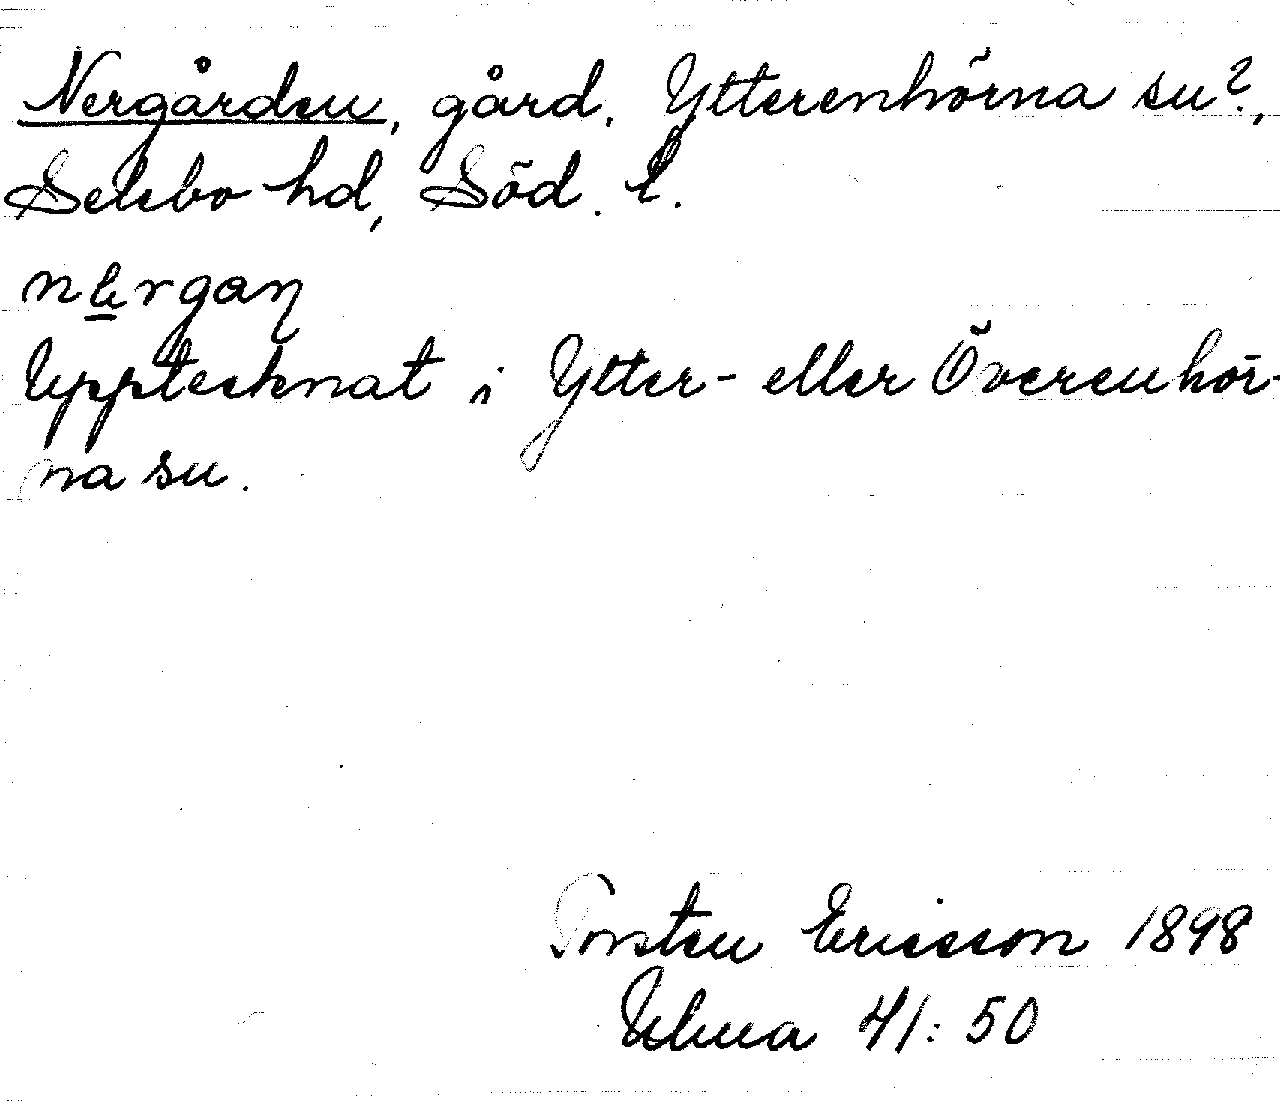 Nergården, gård. Ytterenhörna sn?,
Selebo hd, Söd. l.
Upptecknat i Ytter- eller Överenhör-
na sn.
Torsten Ericsson 1898
Ulma 41:50